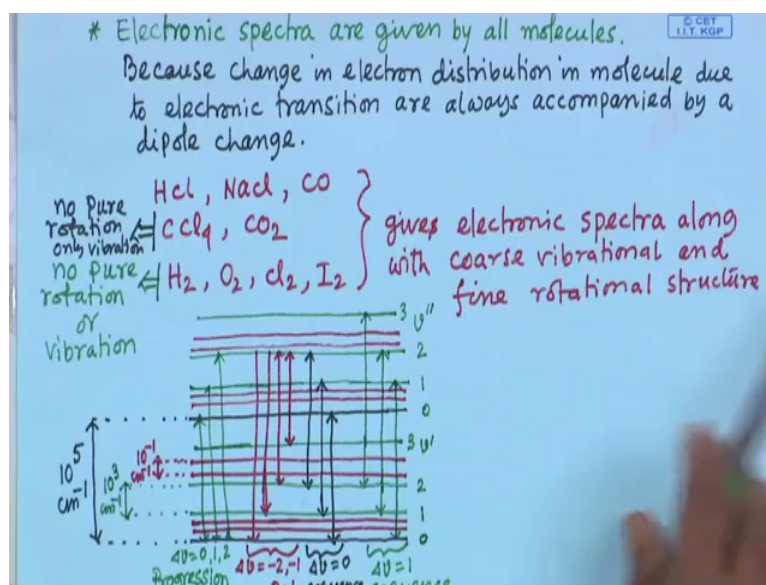 © CET
I.I.T. KGP
* Electronic spectra are given by all molecules.
Because change in electron distribution in molecule due
to electronic transition are always accompanied by a
dipole change.
no pure
rotation
only vibration
⇐
HCl, NaCl, CO
CCl4, CO2
no pure
rotation
or
vibration
⇐
H2, O2, Cl2, I2
gives electronic spectra along
with coarse vibrational and
fine rotational structure
3 υ''
2
1
0
3 υ'
2
1
0
10^5
cm^-1
10^3
cm^-1
10^-1
cm^-1
Δυ=0,1,2
Δυ=-2,-1
Δυ=0
Δυ=1
Progression
sequence